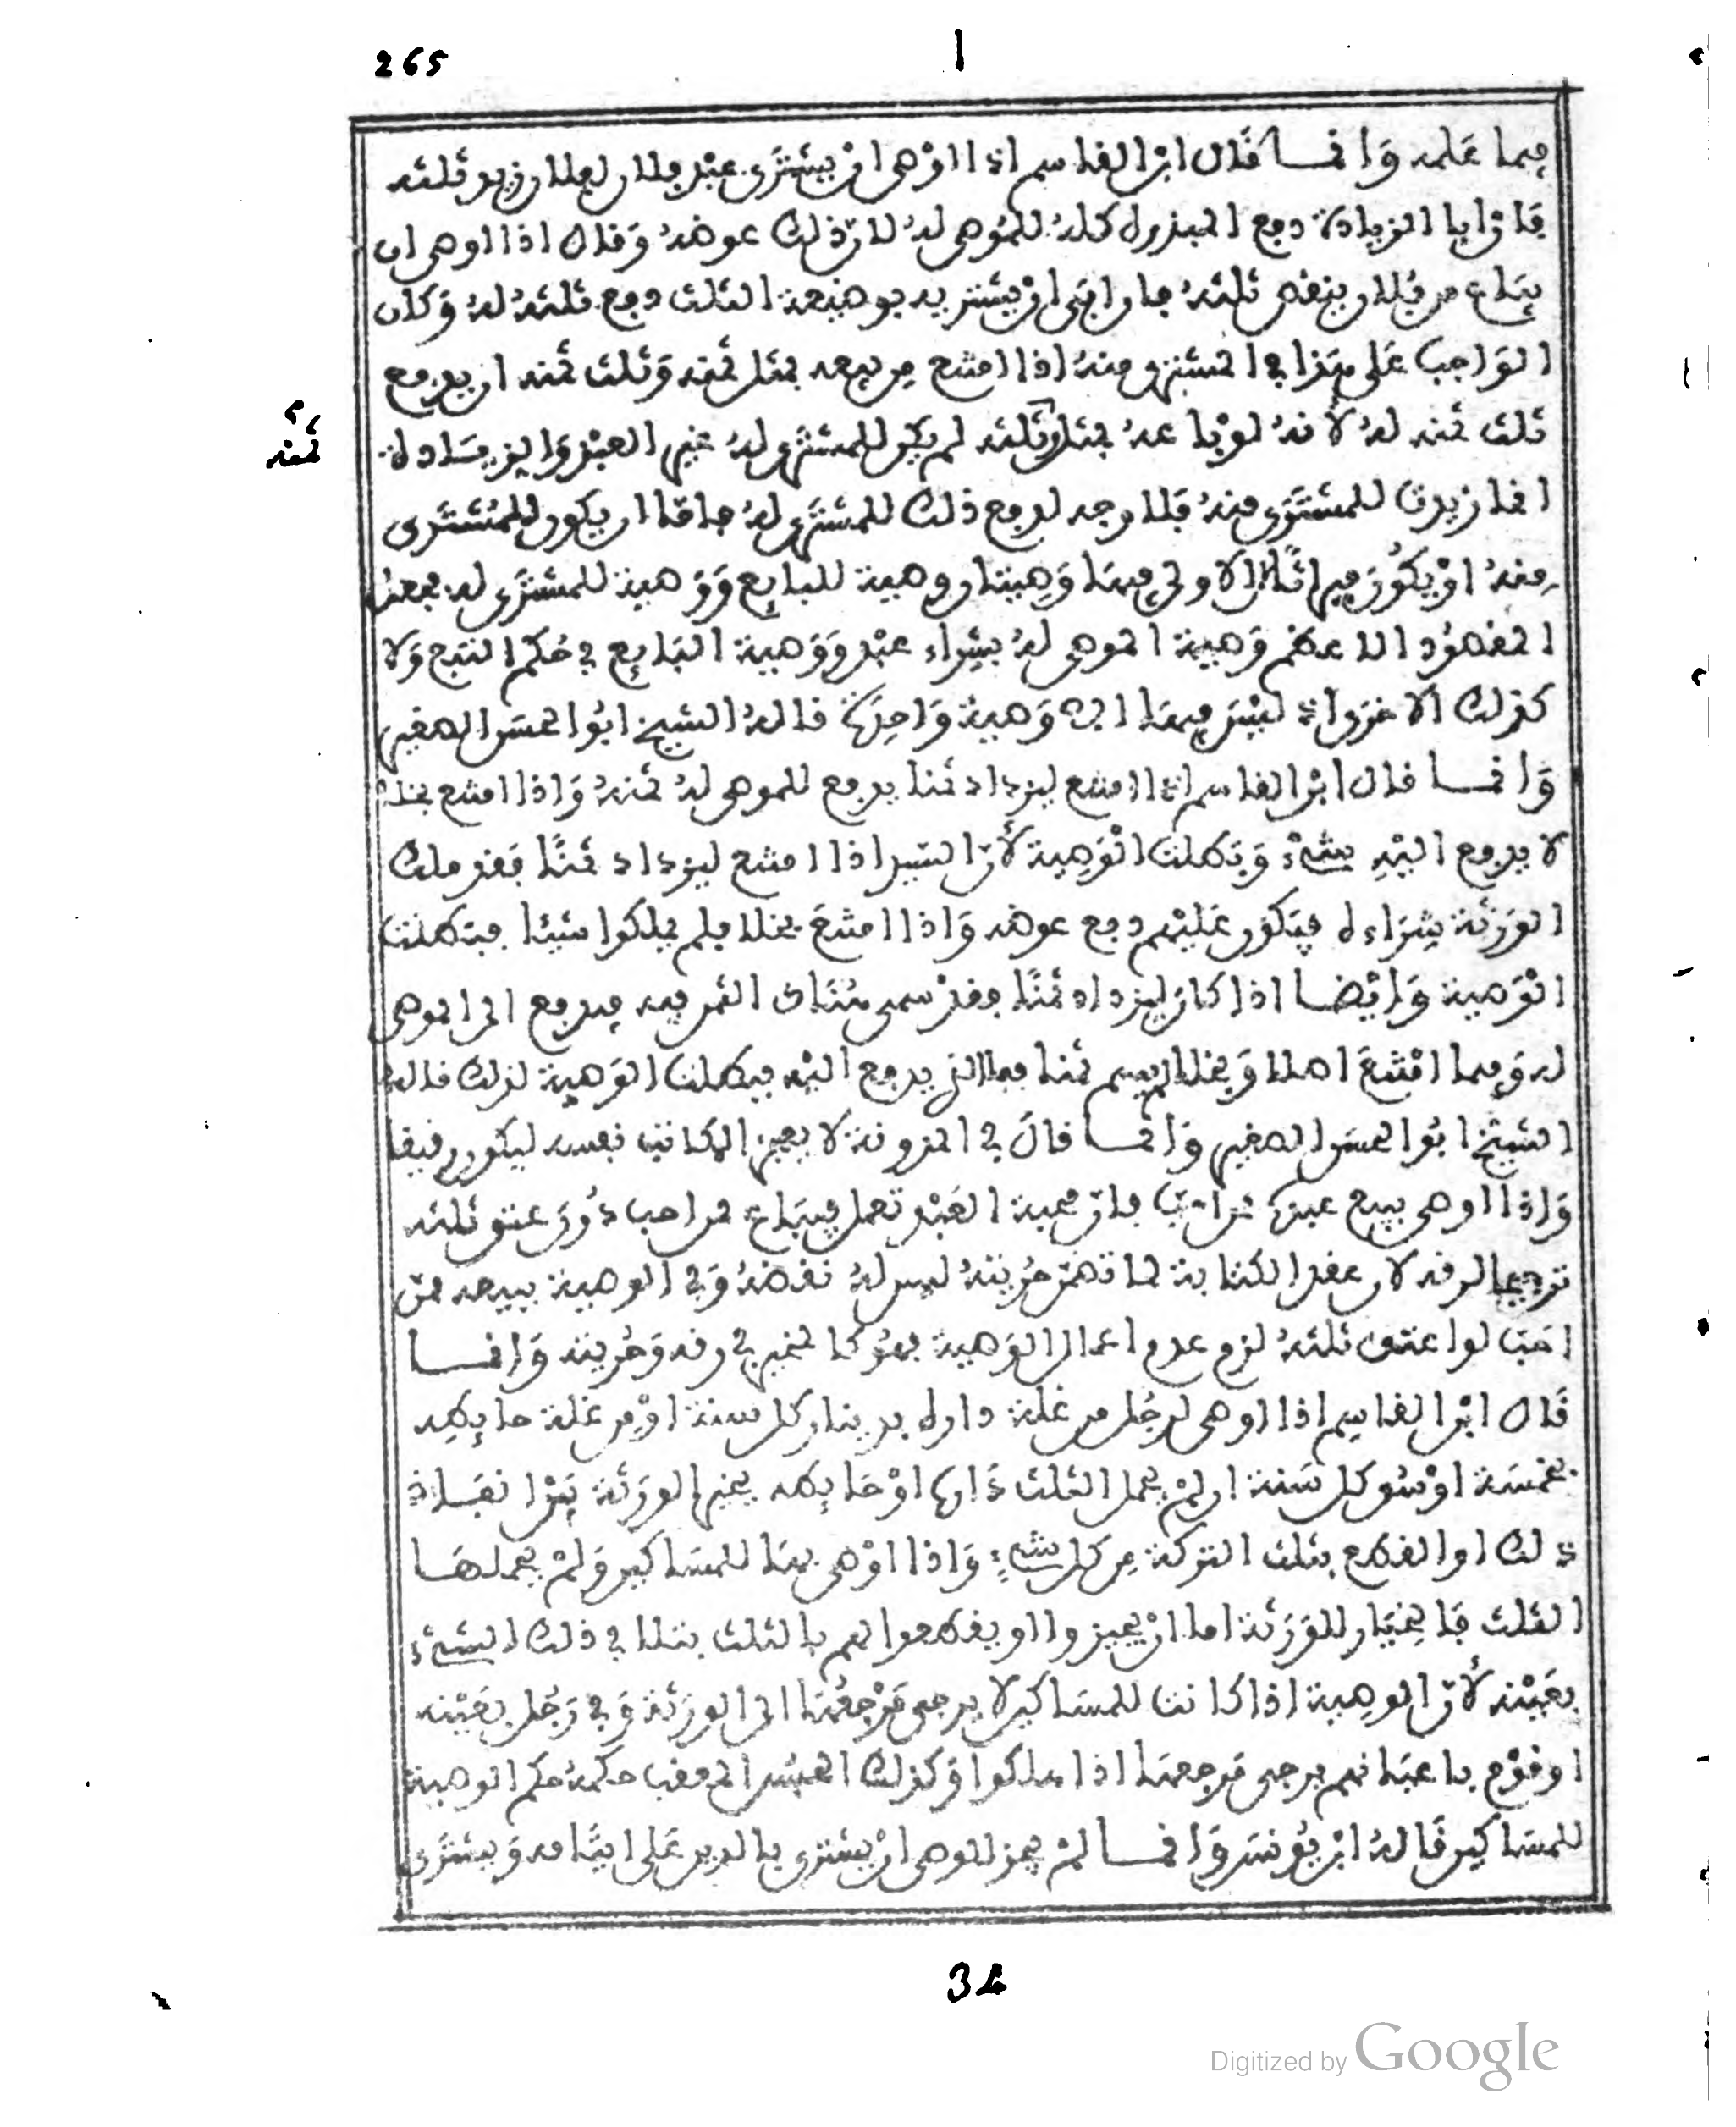 265
فيما علمه وانما قال ابن القاسم اذا اوصى ان يشترى عبد فلان لفلان زيد ثلثه
فان ابا الزيادة دفع المبذول كله للموصى له لان ذلك عوضه وقال اذا اوصى ان
يباع من فلان بنقص ثلثه فان ابى ان يشتريه بوضيعة الثلث دفع ثلثه له وكان
الواجب على هذا في المشترى منه اذا امتنع من بيعه بمثل ثمنه وثلث ثمنه ان يدفع
ثلث ثمنه له لانه لو باعه بمثل وثلثه لم يكن للمشترى له غير العبد والزيادة
ثمنه
انما زيدت للمشترى منه فلا وجه لدفع ذلك للمشترى له فاما ان يكون للمشترى
منه او يكون ميراثا لان الاولى فيها وصيتان وصية للبايع ووصية للمشترى له فجعل
المقصود الاعظم وصية الموصى له بشراء عبد ووصية البايع في حكم التبع ولا
كذلك الاخرى اذ ليس فيها الا وصية واحدة قاله الشيخ ابو الحسن الصغير
وانما قال ابن القاسم اذا امتنع ليزداد ثمنا يدفع للموصى له ثمنه واذا امتنع بخلا
لا يدفع اليه شيء وبطلت الوصية لان السيد اذا امتنع ليزداد ثمنا فقد ملك
الورثة شراءه فيكون عليهم دفع عوضه واذا امتنع بخلا فلم يملكوا شيئا فبطلت
الوصية وايضا اذا كان ليزداد ثمنا فقد سمى هناك الثمن فيه فيدفع الى الموصى
له وفيما امتنع اصلا وبخلا لم يسم ثمنا فما الذي يدفع اليه فبطلت الوصية لذلك قاله
الشيخ ابو الحسن الصغير وانما قال في المدونة لا يعجز المكاتب نفسه ليكون رقيقا
واذا اوصى ببيع عبده ممن احب فان محبة العبد تعمل فيباع ممن احب دون عتق ثلثه
ترجيحا لرقه لان عقد الكتابة لما تضمن حريته ليس له نقضه وفي الوصية ببيعه ممن
احب لو اعتق ثلثه لزم عدم اعمال الوصية فهو كالمخير في رقه وحريته وانما
قال ابن القاسم اذا اوصى لرجل من غلة داره بدينار كل سنة او من غلة حايطه
بخمسة اوسق كل سنة ان لم يحمل الثلث داره او حايطه يخير الورثة بين انفاذ
ذلك او القطع بثلث التركة من كل شيء واذا اوصى بها للمساكين ولم يحملها
الثلث فالخيار للورثة اما ان يجيزوا او يقطعوا لهم بالثلث بتلا في ذلك الشيء
بعينه لان الوصية اذا كانت للمساكين لا يرجى مرجعها الى الورثة وفي رجل بعينه
او قوم باعيانهم يرجى مرجعها اذا هلكوا وكذلك الحبس المعقب حكمه حكم الوصية
للمساكين قاله ابن يونس وانما لم يجز للوصى ان يشترى بالدين على ايتامه ويشترى
34
Digitized by Google